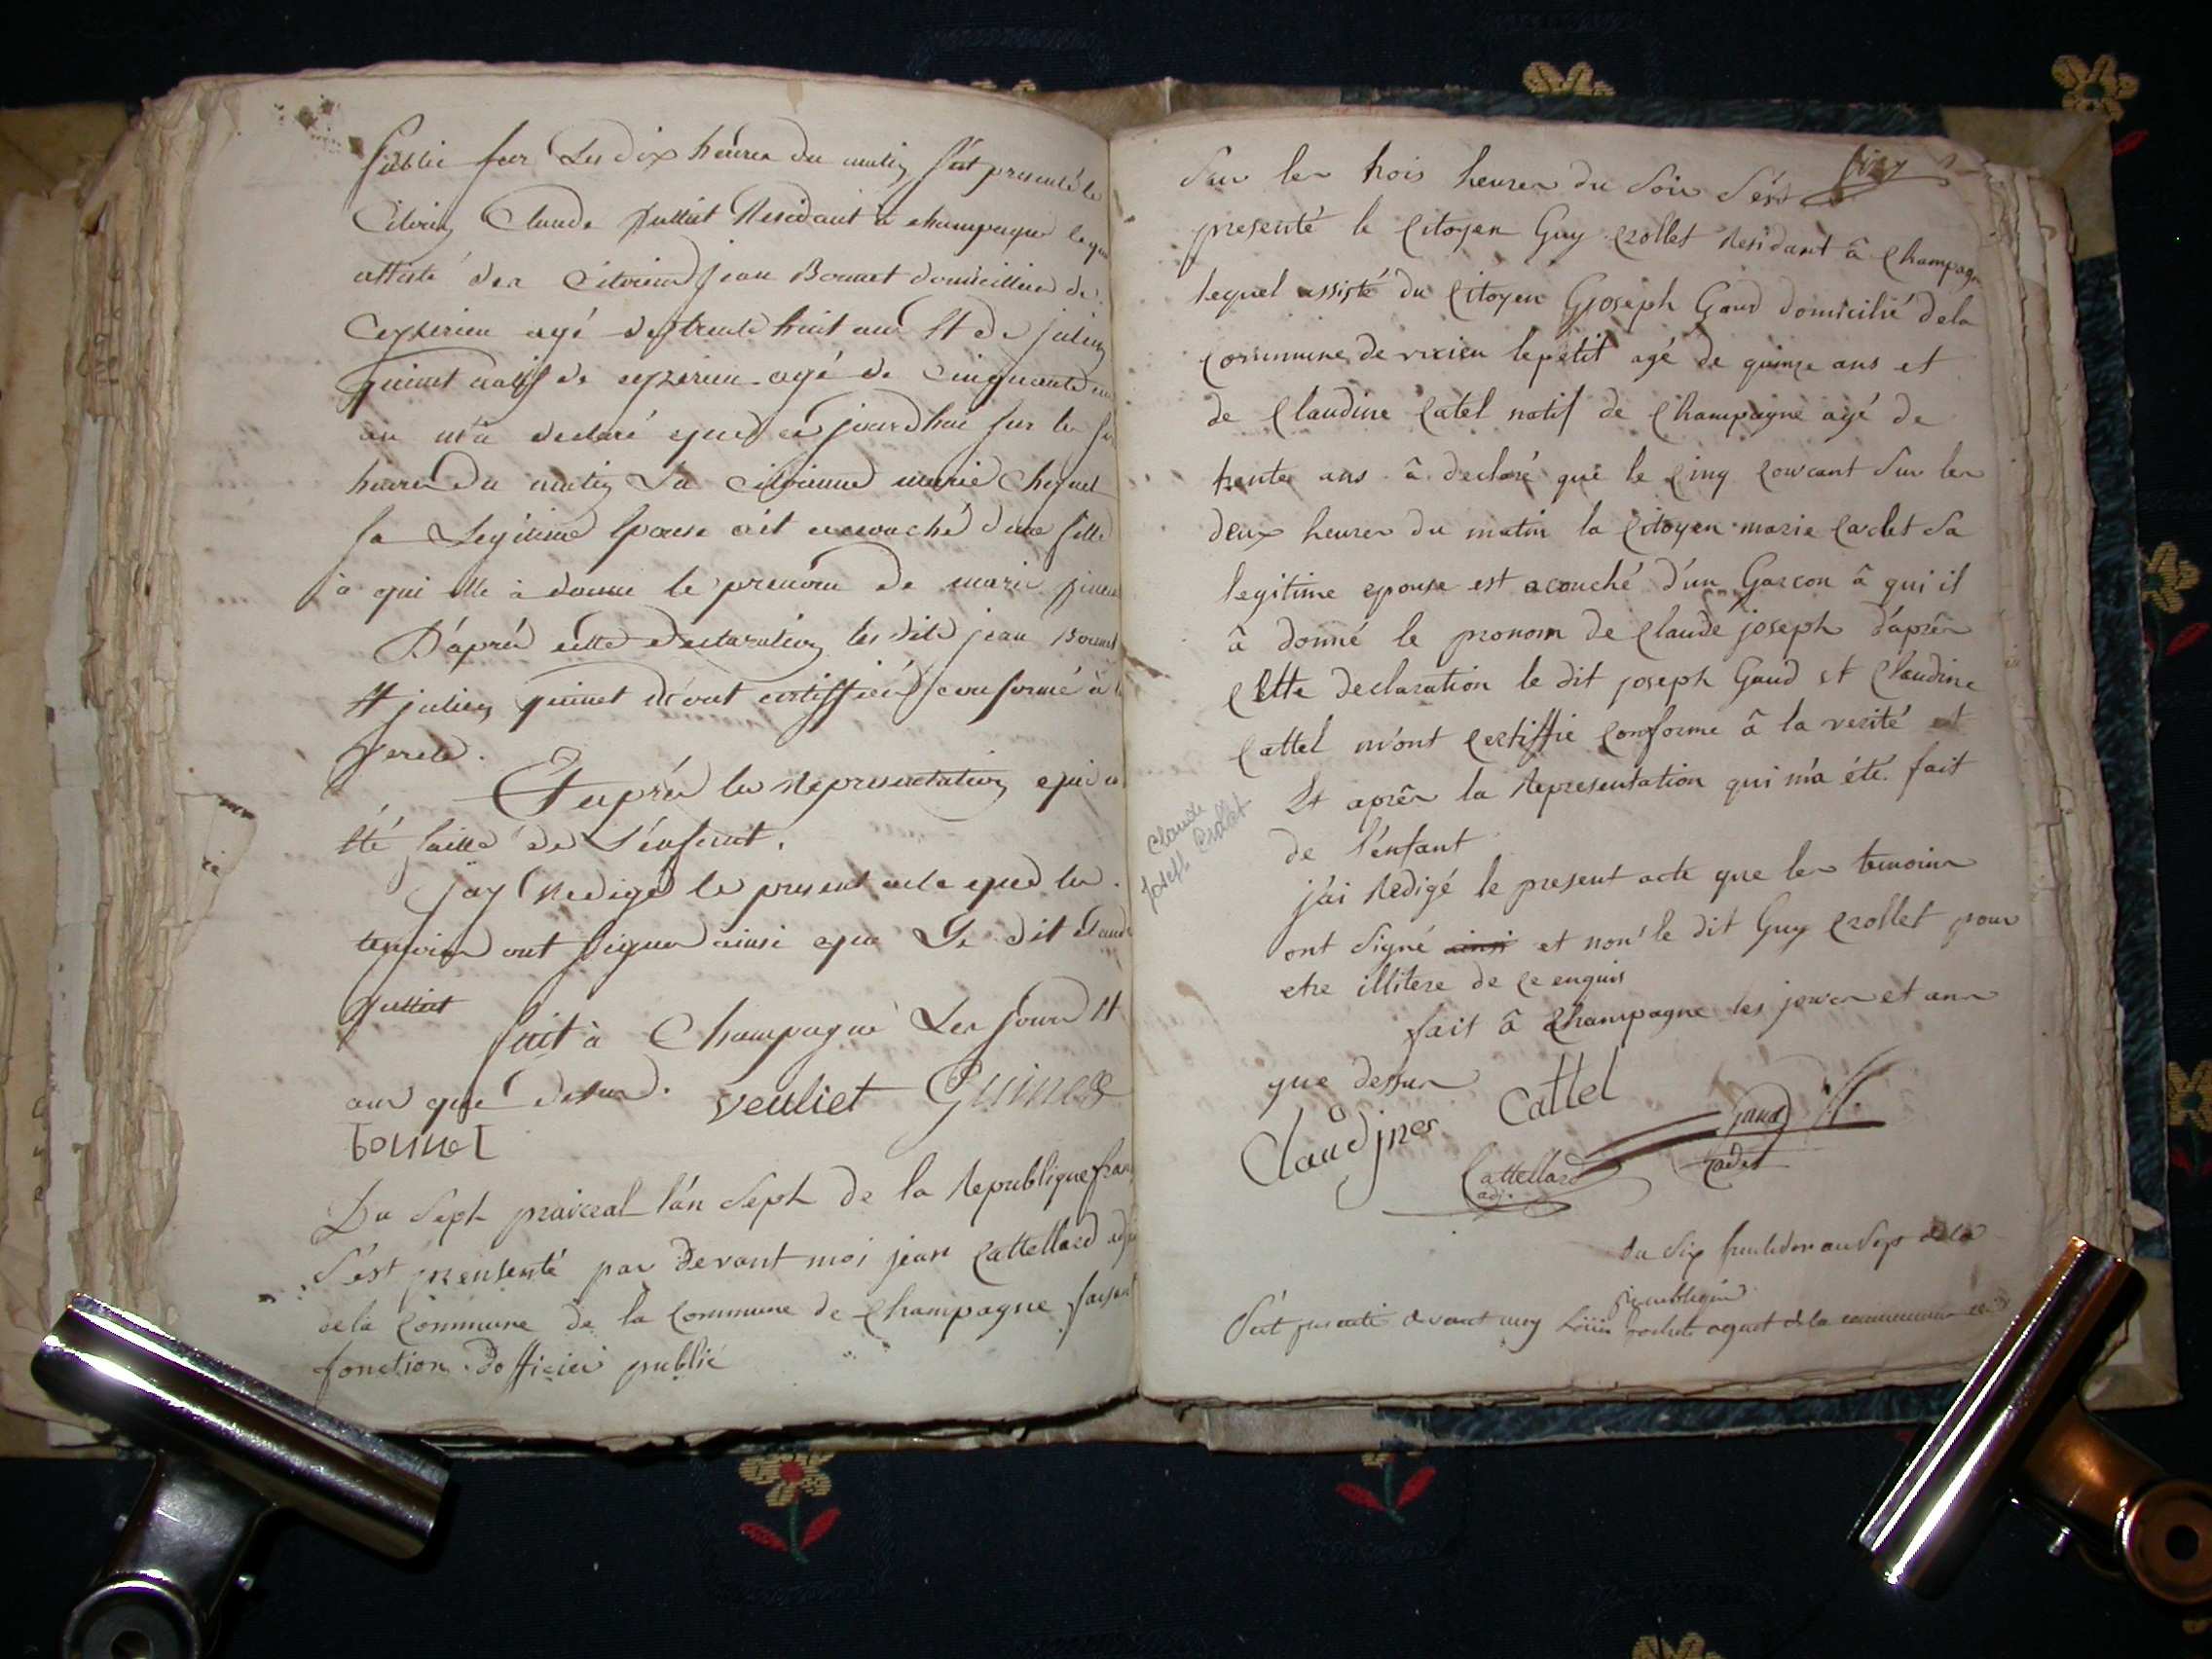 public sur Les dix heures du matin s'est presenté le
Citoien Claude Resident à champagne lequel
des Citoiens jean Bonnet domicillier de
Ceyzerieu agé de trente huit ans Et de julien
natif de ceyzerieu agé de Cinquante
an m'a declaré que ce jourdhui sur les
heures du matin La citoienne marie
sa Legitime Epouse est accouché d'une fille
à qui elle à donné le prenom de marie
D'aprés cette declaration les dits jean Bonnet
Et julien m'ont certiffiés conforme à la
verité.
Et aprés la Representation qui
été faitte de L'enfant.
jay Redigé le present acte que les
temoins ont signer ainsi que Le dit Claude
fait à Champagne Les jours Et
ans que dessus. veuliet Guinet
bonnet
Du Sept praireal l'an Sept de la Republique fran
S'est prensenté par Devant moi jean Cattellard adj
de la Commune de la Commune de Champagne faisant
fonction Dofficier public
Sur les trois heures du Soir S'est
presenté le Citoyen Guy Crollet Residant â Champagne
lequel assisté du Citoyen Gjoseph Gaud domicilié dela
Commune de virieu lepetit agé de quinze ans et
de Claudine Catel natif de Champagne agé de
trente ans â declaré que le Cinq Courant Sur les
deux heures du matin la Citoyen marie Carlet Sa
legitime epouse est acouché d'un Garcon â qui il
â donné le pronom de Claude joseph d'aprês
Cette declaration le dit joseph Gaud et Claudine
Cattel m'ont Certiffie Conforme â la verité et
Et aprês la Representation qui m'a été fait
de l'enfant
Claude
Joseph Crollet
j'ai Redigé le present acte que les temoins
ont Signé ainsi et non le dit Guy Crollet pour
etre illitere de Ce enquis
fait â Champagne les jours et ans
que dessus
Claudines Cattel
Gaud
Cattellard
adj.
du Six an Sept de la
Republique
S'est presenté devant moy Louis agent de la commune de